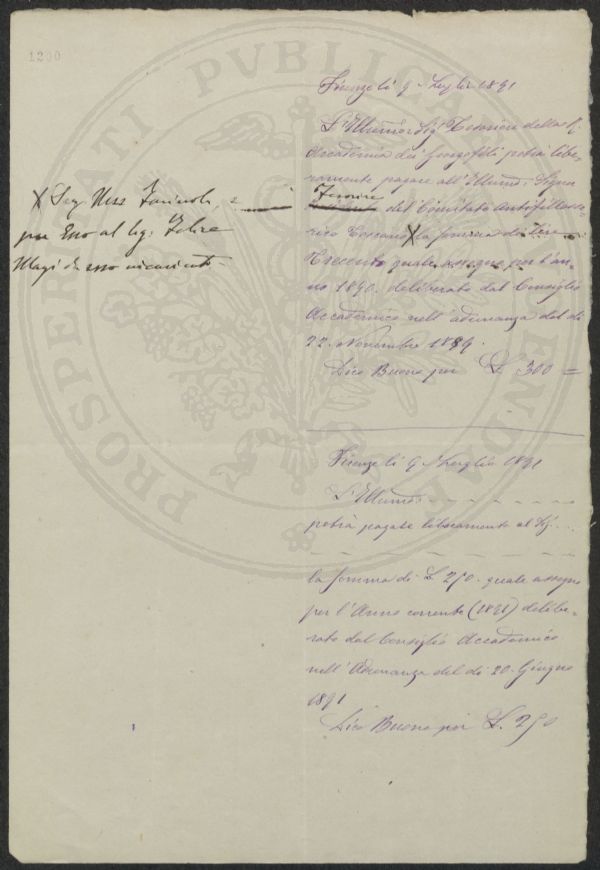 1200
PROSPERITATI PVBLICAE AVGENDAE
Firenze li 9 Luglio 1891
L'Illmo Sig Tesoriere della R.
Accademia dei Georgofili potrà libe-
ramente pagare all'Illmo: Signor
Tesoriere
del Comitato Antifillosse-
rico Toscano X la somma di Lire
Trecento quale assegno per l'an-
no 1890. deliberato dal Consiglio
Accademico nell'adunanza del dì
22. Novembre 1889.
Dico Buono per L. 300 =
X Sig.
per Esso al Sig: Felice
Magi da esso incaricato
Firenze li 9 Luglio 1891
L'Illmo:
potrà pagare liberamente al Sig.
la somma di L 250. quale assegno
per l'Anno corrente (1891) delibe-
rato dal Consiglio Accademico
nell'Adunanza del dì 20. Giugno
1891
Dico Buono per L. 250